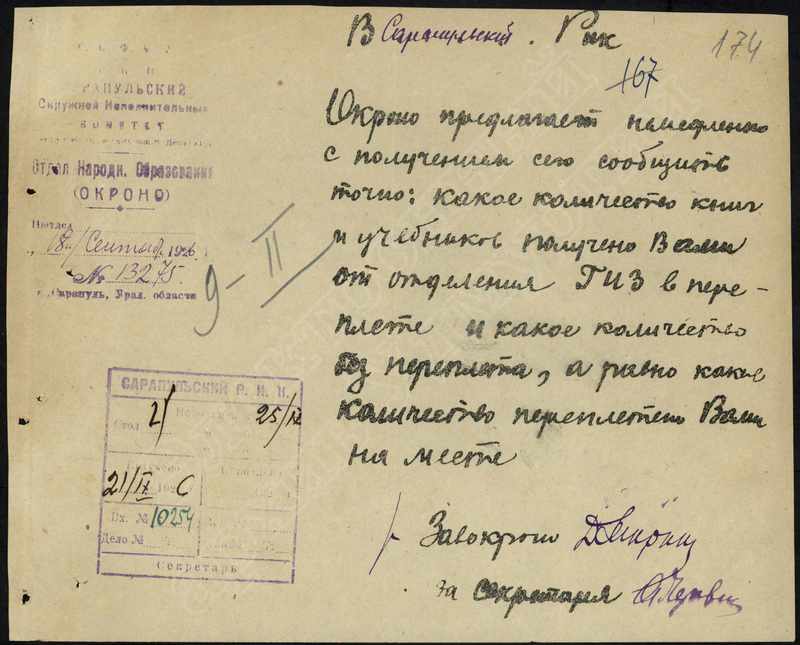 В Сарапульский Рик
174
167
САРАПУЛЬСКИЙ
Окружной Исполнительный
КОМИТЕТ
Отдел Народн. Образования
(ОКРОНО)
18/Сентябр. 1926
№ 13275.
г. Сарапуль, Урал. области
9-II
Окроно предлагает немедленно
с получением сего сообщить
точно: какое количество книг
и учебников получено Вами
от отделения ГИЗ в пере-
плете и какое количество
без переплета, а равно какое
количество переплетено Вами
на месте
САРАПУЛЬСКИЙ Р. И. К.
Стол 2/
25/IX
21/IX 192 6
Вх. № 10254
Дело №
Секретарь
Завокроно
за секретаря